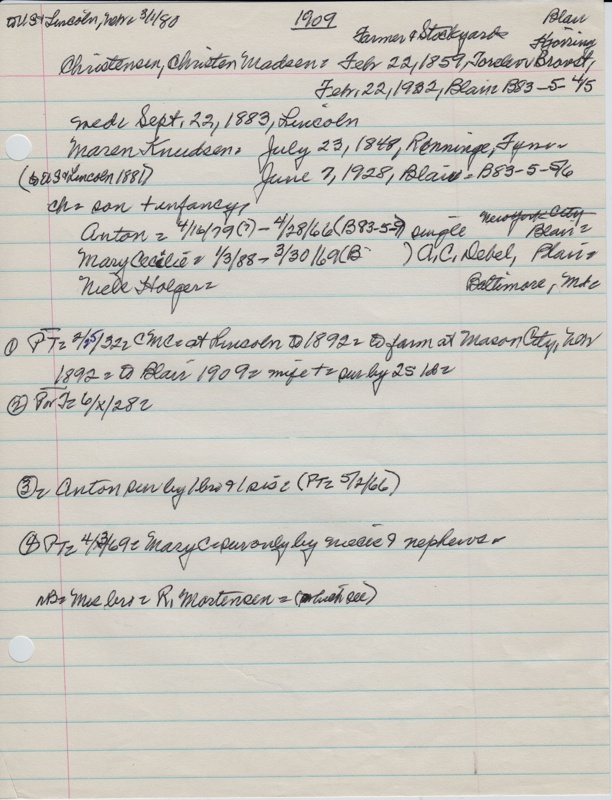 to US & Lincoln, Nebr = 3/1/80 1909 Blair
Farmer & Stockyards Hjörring
Christensen, Christen Madsen = Feb 22, 1859, Torslev Brovst,
Feb. 22, 1932, Blair B83-5-4/5
med: Sept. 22, 1883, Lincoln
Maren Knudsen = July 23, 1848, Rønninge, Fyn =
(to US & Lincoln 1881) June 7, 1928, Blair = B83-5-5/6
ch = son + infancy,
Anton = 4/16/79(?) - 4/28/66 (B83-5-9) single New York City Blair =
Mary Cecilie = 1/3/88 - 3/30/69 (B- ) A.C. Debel, Blair =
Niels Holger = Baltimore, Md =
① PT = 2/25/32 = CMC = at Lincoln to 1892 = to farm at Mason City, Nebr
1892 = to Blair 1909 = wife + = sur by 2s 1d =
② PorT = 6/x/28 =
③ = Anton sur by 1 bro & 1 sis = (PT = 5/2/66)
④ PT = 4/3/69 = Mary C = sur only by niece & nephews =
NB = Mrs bro = R. Mortensen = ( see)